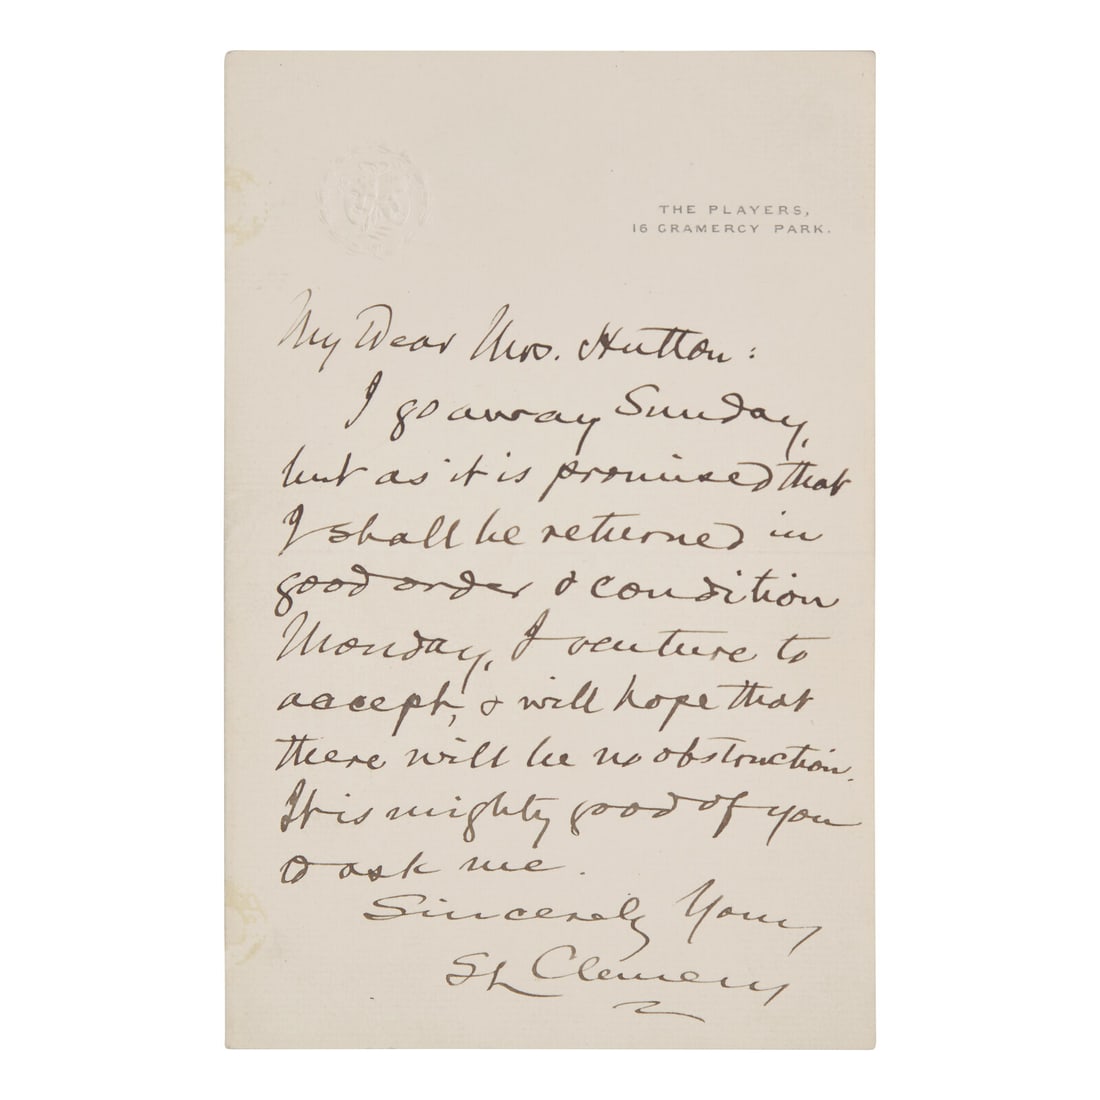 THE PLAYERS,
16 GRAMERCY PARK.
My Dear Mrs. Hutton:
I go away Sunday,
but as it is promised that
I shall be returned in
good order & condition
Monday, I venture to
accept, & will hope that
there will be no obstruction.
It is mighty good of you
to ask me.
Sincerely Yours
SL Clemens